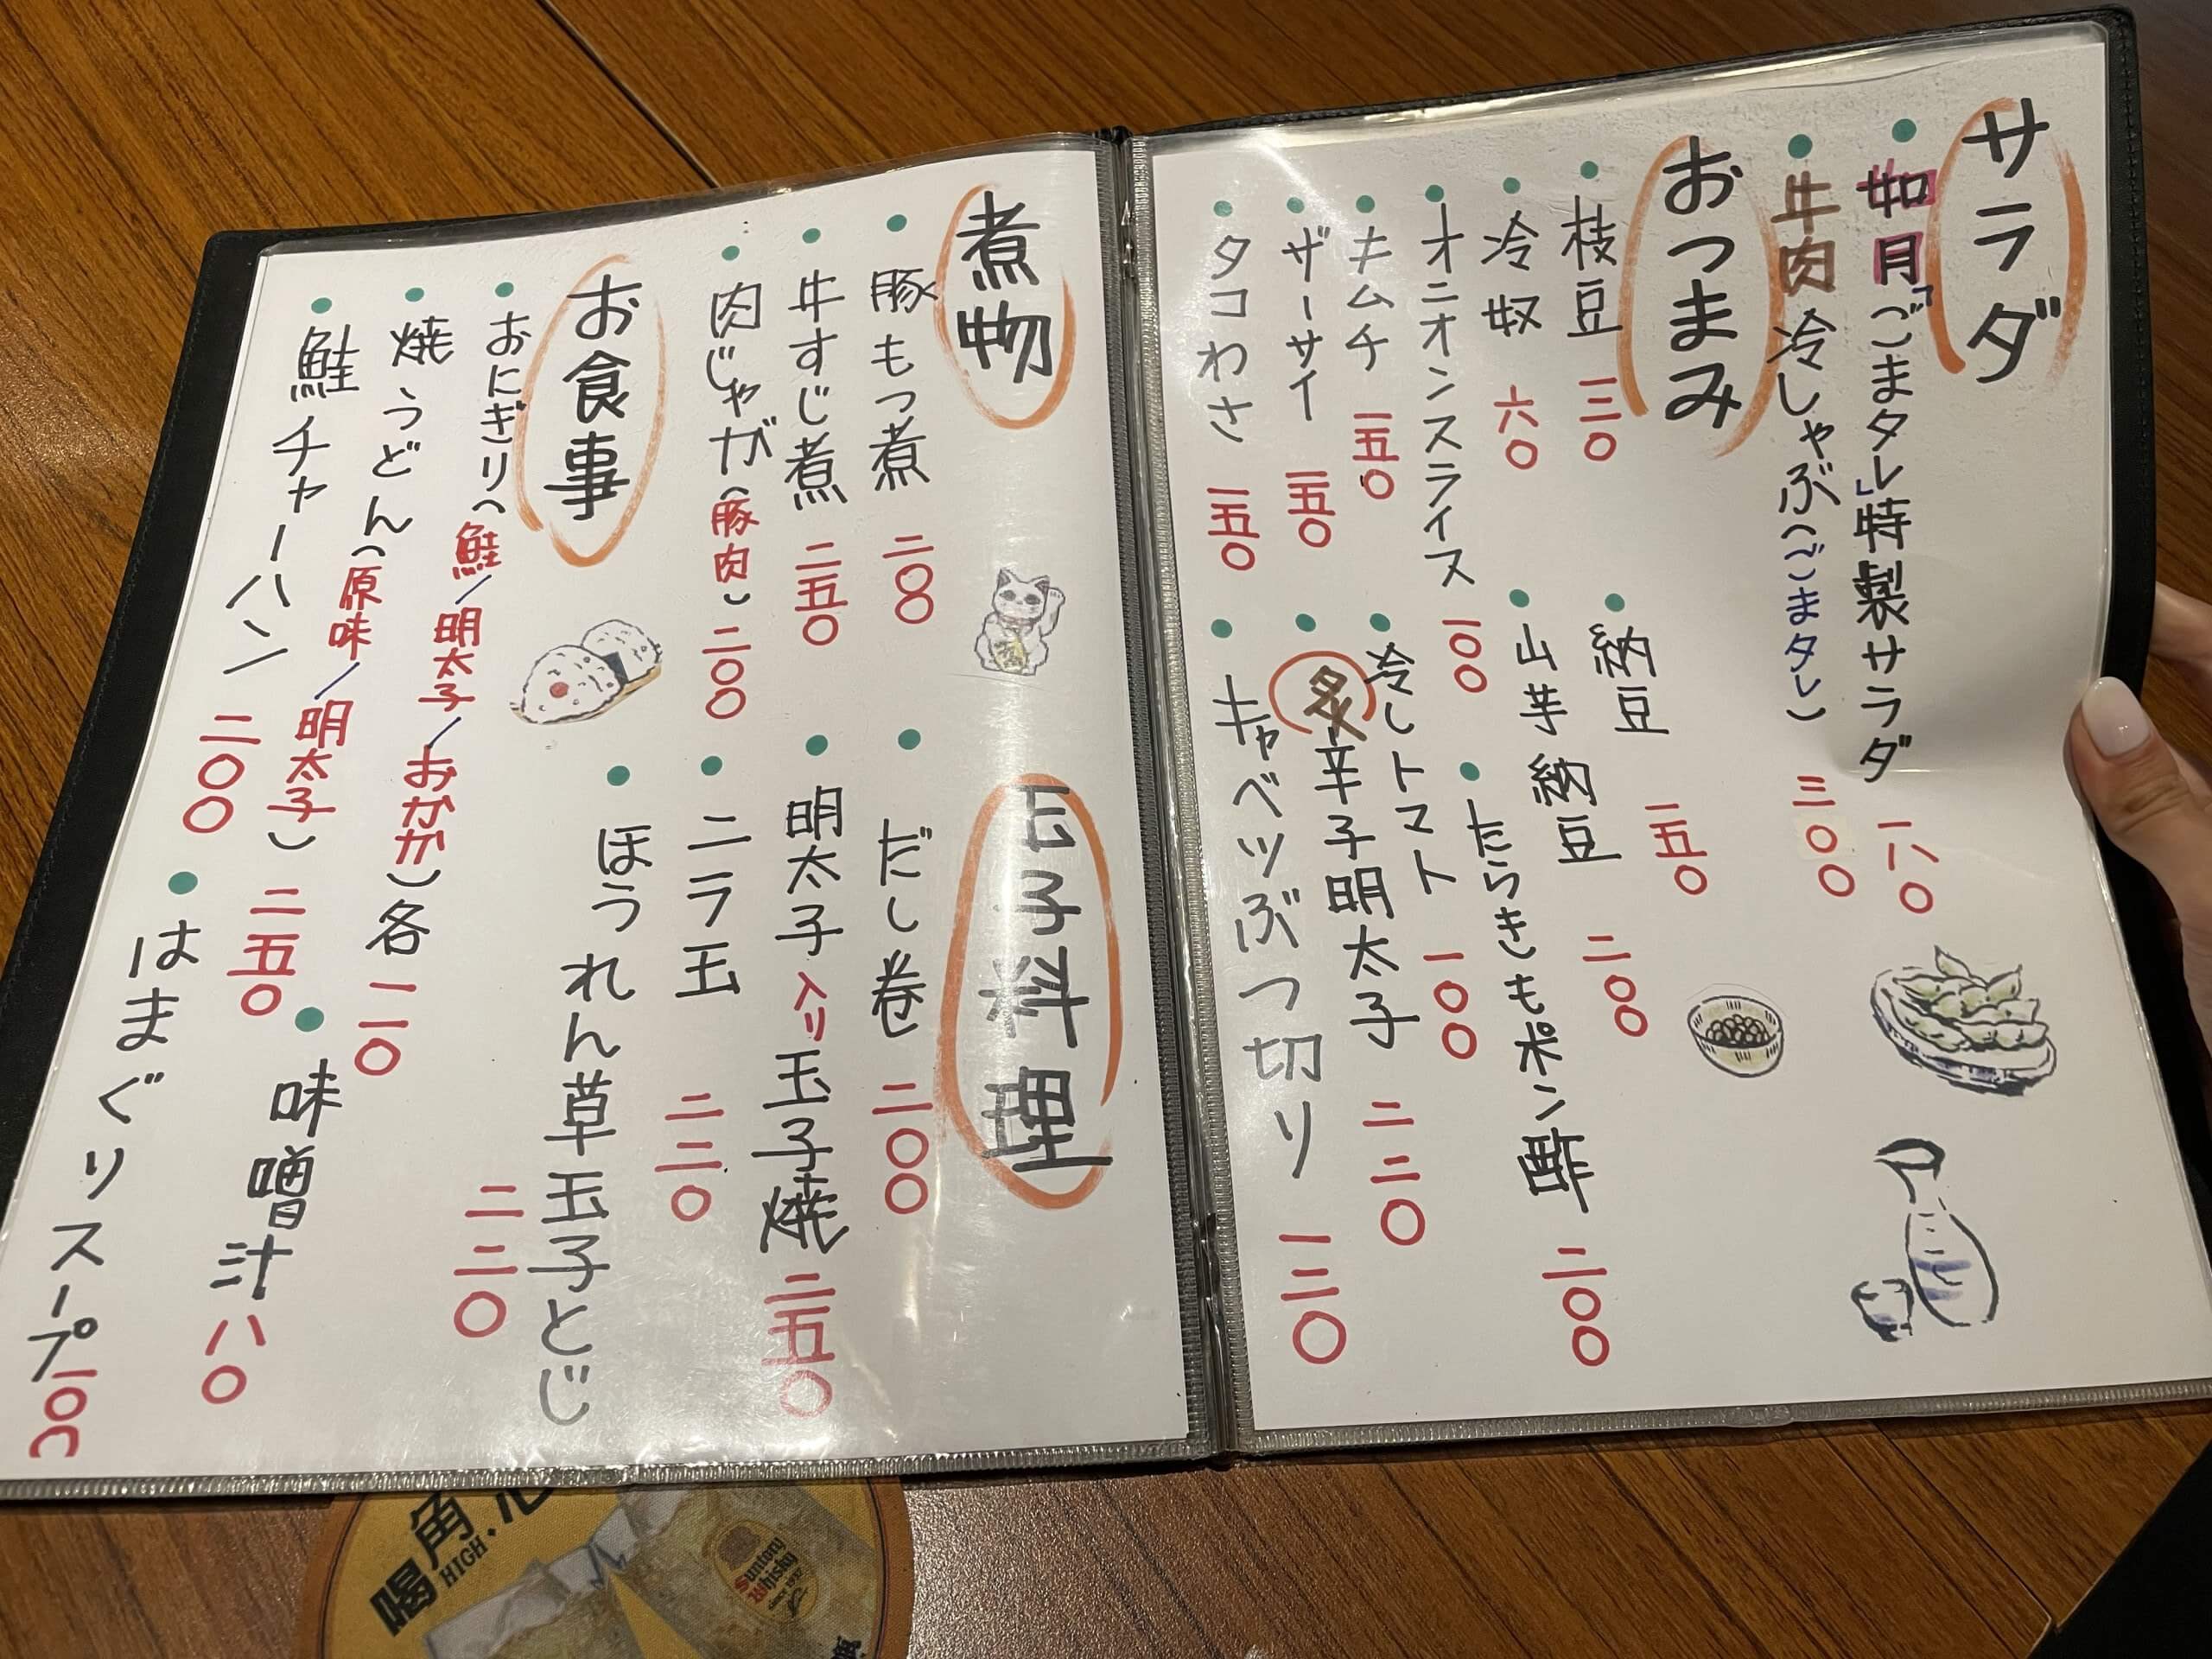 サラダ
如月「ごまタレ」特製サラダ 一八〇
牛肉冷しゃぶ(ごまタレ) 三〇〇
おつまみ
枝豆 一三〇
納豆 一五〇
冷奴 六〇
山芋納豆 二〇〇
オニオンスライス 一〇〇
たらきもポン酢 二〇〇
キムチ 一五〇
冷しトマト 一〇〇
ザーサイ 一五〇
炙辛子明太子 二二〇
タコわさ 一五〇
キャベツぶつ切り 一三〇
煮物
豚もつ煮 二〇〇
牛すじ煮 二五〇
肉じゃが(豚肉) 二〇〇
玉子料理
だし巻 二〇〇
明太子入り玉子焼 二五〇
ニラ玉 二二〇
ほうれん草玉子とじ 二二〇
お食事
おにぎり(鮭/明太子/おかか)各 一一〇
焼うどん(原味/明太子) 二五〇
味噌汁 八〇
鮭チャーハン 二〇〇
はまぐりスープ 一〇〇
喝角
HIGH
Suntory
Whisky
since 1937